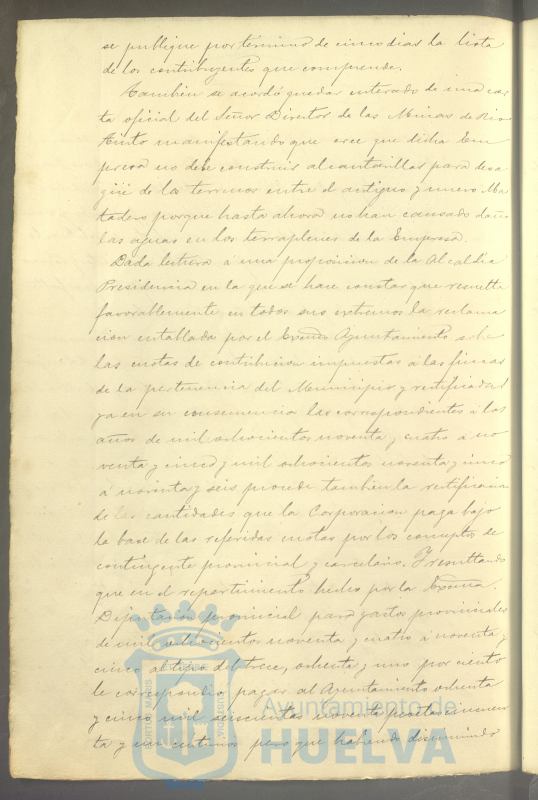 se publique por término de cinco dias la lista
de los contribuyentes que comprende.
Tambien se acordó quedar enterado de una car
ta oficial del Señor Director de las Minas de Rio
Tinto manifestando que cree que dicha Em
presa no debe construir alcantarillas para desa
güe de los terrenos entre el antiguo y nuevo Ma
tadero porque hasta ahora no han causado daño
las aguas en los terraplenes de la Empresa.
Dada lectura á una proposicion de la Alcaldia
Presidencia en la que se hace constar que resuelta
favorablemente en todos sus extremos la reclama
cion entablada por el Excmo Ayuntamiento sobre
las cuotas de contribucion impuestas á las fincas
de la pertenencia del Municipio y rectificadas
ya en su consecuencia las correspondientes á los
años de mil ochocientos noventa y cuatro á no
venta y cinco y mil ochocientos noventa y cinco
á noventa y seis procede tambien la rectificacion
de las cantidades que la Corporacion paga bajo
la base de las referidas cuotas por los conceptos de
contingente provincial y carcelario. Y resultando
que en el repartimiento hecho por la Excma.
Diputacion provincial para gastos provinciales
de mil ochocientos noventa y cuatro á noventa y
cinco al tipo del trece, ochenta y uno por ciento
le correspondio pagar al Ayuntamiento ochenta
y cinco mil seiscientas noventa pesetas cincuen
ta y un centimos pero que habiendo disminuido
Ayuntamiento de
HUELVA
PORTUS MARIS
CUSTODIA